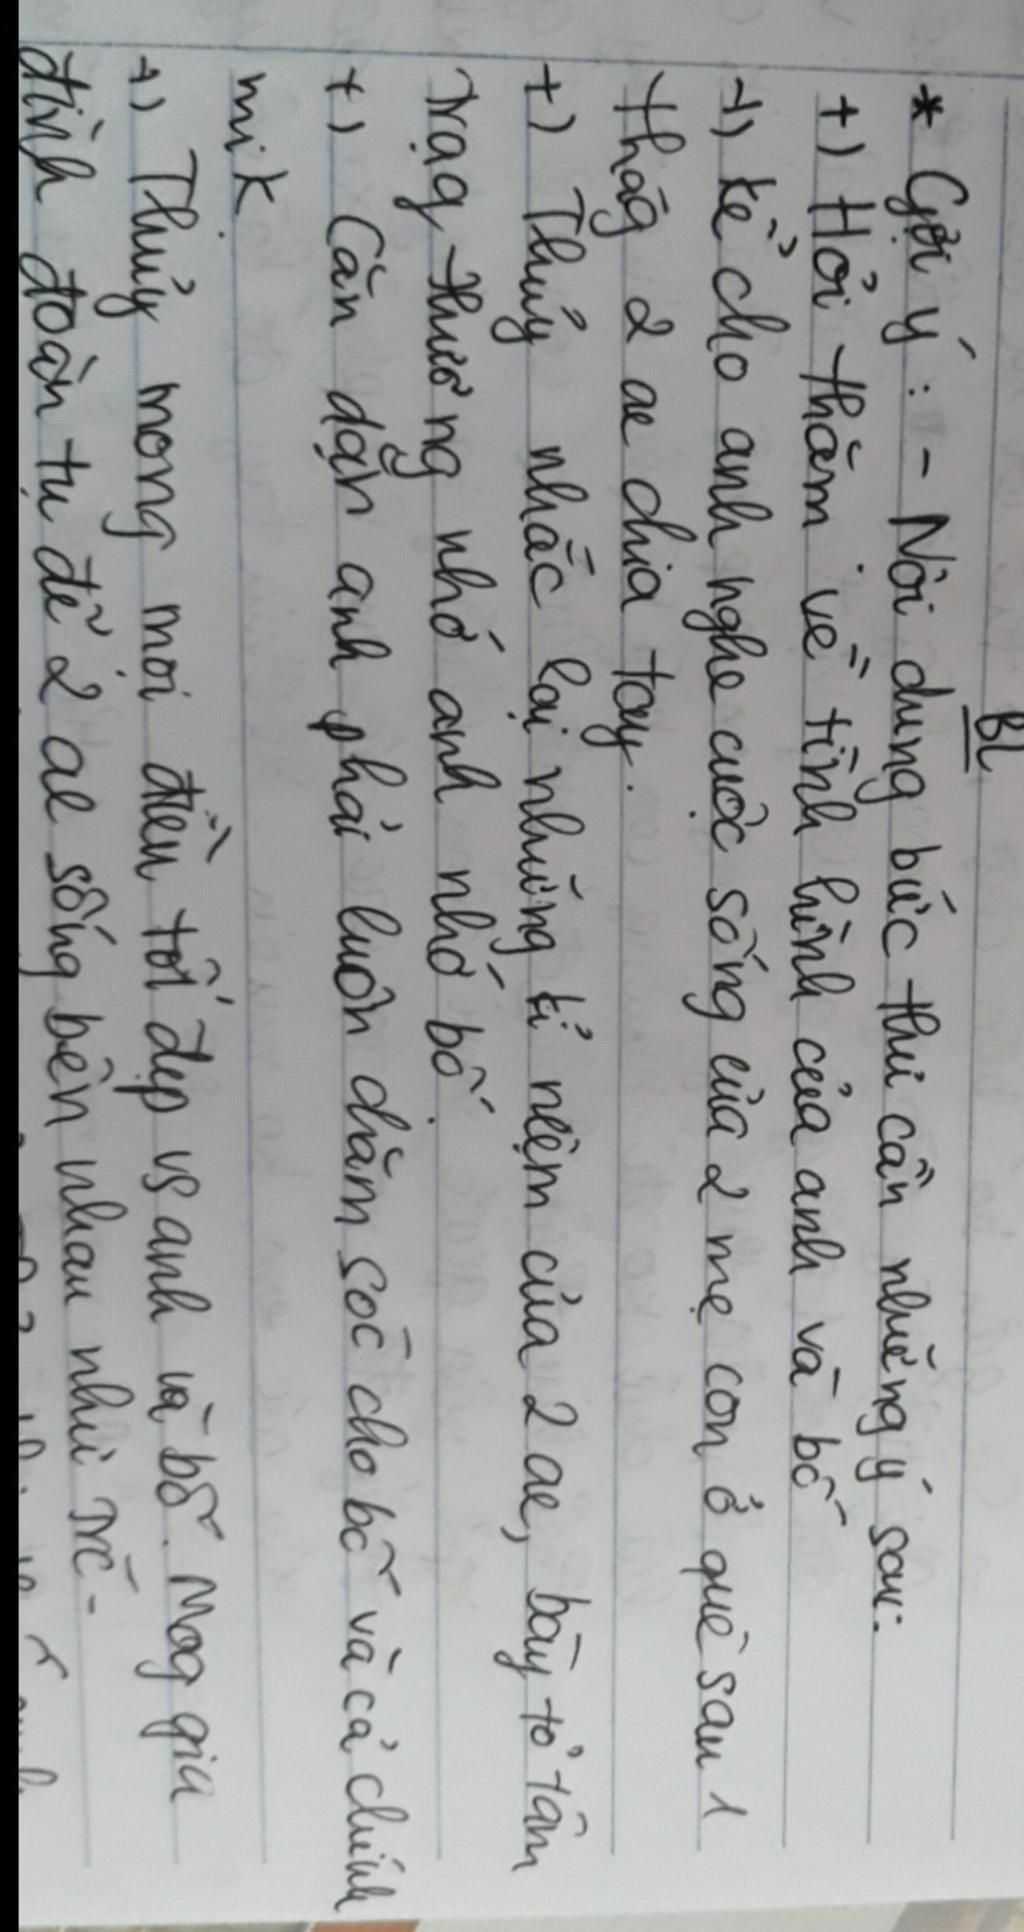 BL
* Gợi ý : - Nội dung bức thư cần những ý sau:
+) Hỏi thăm về tình hình của anh và bố
+) kể cho anh nghe cuộc sống của 2 mẹ con ở quê sau 1
thág 2 ae chia tay.
+) Thủy nhắc lại những kỉ niệm của 2 ae, bày tỏ tâm
trạg thương nhớ anh nhớ bố.
+) Căn dặn anh phải luôn chăm sóc cho bố và cả chính
mik
+) Thủy mong mọi điều tốt đẹp vs anh và bố. Mog gia
đình đoàn tụ để 2 ae sống bên nhau như trc-